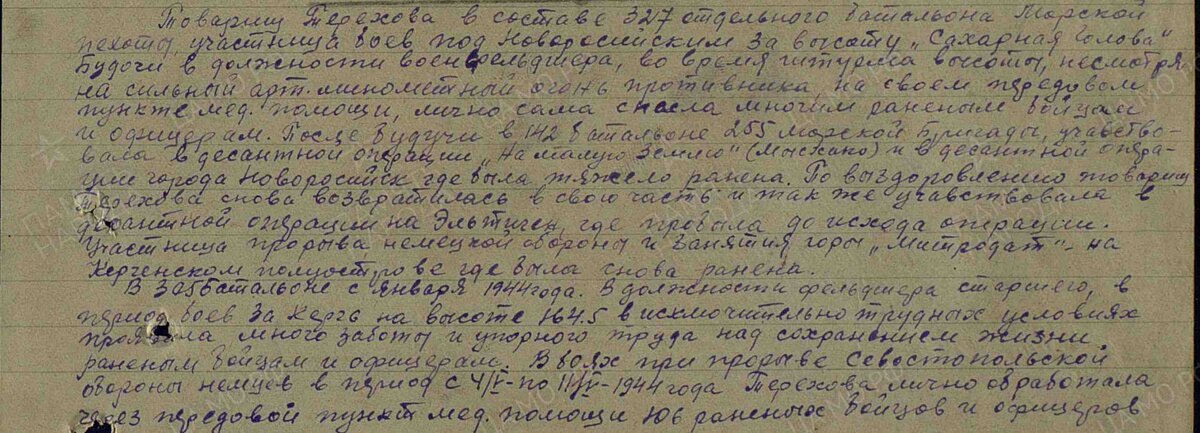 Товарищ Терехова в составе 327 отдельного батальона Морской
пехоты, участница боев под Новоросийским за высоту „Сахарная голова"
Будучи в должности военфельдшера, во время штурма высоты, несмотря
на сильный арт. минометный огонь противника, на своем передовом
пункте мед. помощи, лично сама спасла многим раненым бойцам
и офицерам. После будучи в 142 батальоне 255 морской Бригады, учавство-
вала в десантной операции „На малую Землю" (Мысхако) и в десантной опера-
ции города Новоросийск где была тяжело ранена. По выздоровлению товарищ
Терехова снова возвратилась в свою часть и так же учавствовала в
десантной операции на Эльтиген, где пробыла до исхода операции.
Участница прорыва немецкой обороны и занятия горы „Митродат"- на
Керченском полуострове где была снова ранена.
В 305 батальоне с января 1944 года. В должности фельдшера старшего, в
период боев за Керчь на высоте 164.5 в исключительно трудных условиях
проявила много заботы и упорного труда над сохранением жизни
раненым бойцам и офицерам. В боях при прорыве Севостопольской
обороны немцев в период с 4/V- по 11/V-1944 года Терехова лично обработала
через передовой пункт мед. помощи раненых бойцов и офицеров